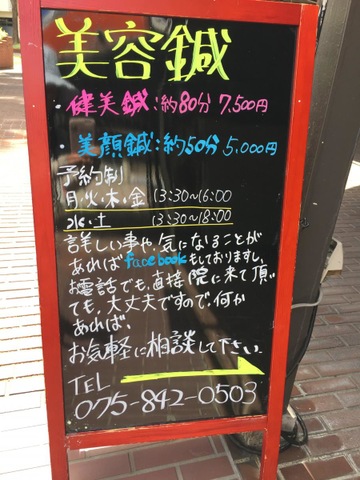 美容鍼
・健美鍼:約80分 7,500円
・美顔鍼:約50分 5,000円
予約制
月・火・木・金 13:30~16:00
水・土 13:30~18:00
詳しい事や、気になることが
あればfacebookもしておりますし、
お電話でも、直接院に来て頂い
ても、大丈夫ですので、何か
あれば、
お気軽に相談して下さい。
TEL
075-842-0503